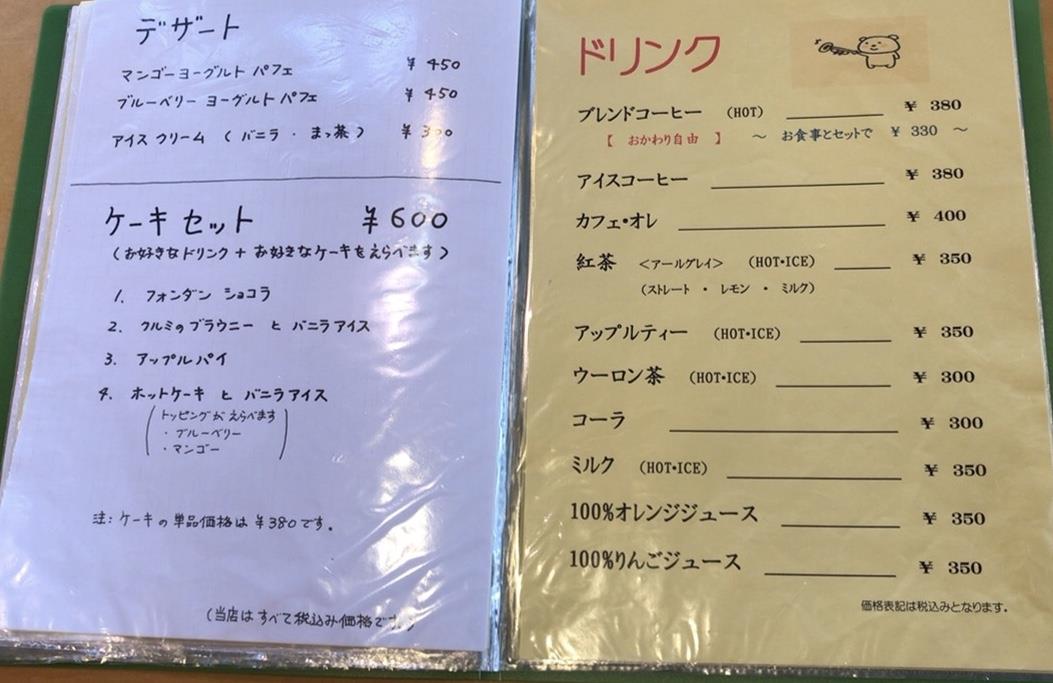 デザート
マンゴーヨーグルト パフェ ¥450
ブルーベリー ヨーグルトパフェ ¥450
アイス クリーム (バニラ ・ まっ茶) ¥300
ケーキ セット ¥600
(お好きなドリンク + お好きなケーキをえらべます)
1. フォンダン ショコラ
2. クルミのブラウニー と バニラアイス
3. アップルパイ
4. ホットケーキ と バニラアイス
(トッピングが えらべます
・ブルーベリー
・マンゴー)
注:ケーキの単品価格は ¥380です。
(当店は すべて 税込み価格です。)
ドリンク
ブレンドコーヒー (HOT) ¥ 380
【 おかわり自由 】 ～ お食事とセットで ¥ 330 ～
アイスコーヒー ¥ 380
カフェ・オレ ¥ 400
紅茶 <アールグレイ> (HOT・ICE) ¥ 350
(ストレート ・ レモン ・ ミルク)
アップルティー (HOT・ICE) ¥ 350
ウーロン茶 (HOT・ICE) ¥ 300
コーラ ¥ 300
ミルク (HOT・ICE) ¥ 350
100%オレンジジュース ¥ 350
100%りんごジュース ¥ 350
価格表記は税込みとなります。